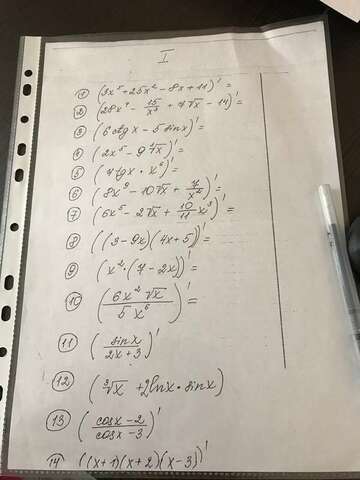 I
1 (3x⁵+25x²-8x+11)'=
2 (28x⁴ - 15/x³ + 7√x - 14)'=
3 (6ctgx - 5sinx)'=
4 (2x⁵ - 9∜x)'=
5 (4tgx · x⁶)'=
6 (8x⁹ - 10√x + 7/x⁴)'=
7 (6x⁵ - 2√x + 10/11 x³)'=
8 ((3-9x)(4x+5))'=
9 (x²·(7-2x))'=
10 (6x²√x / 5x⁶)'=
11 (sinx / 2x+3)'
12. (∛x +2lnx·sinx)
13 (cosx-2 / cosx-3)'
14 ((x+1)(x+2)(x-3))'